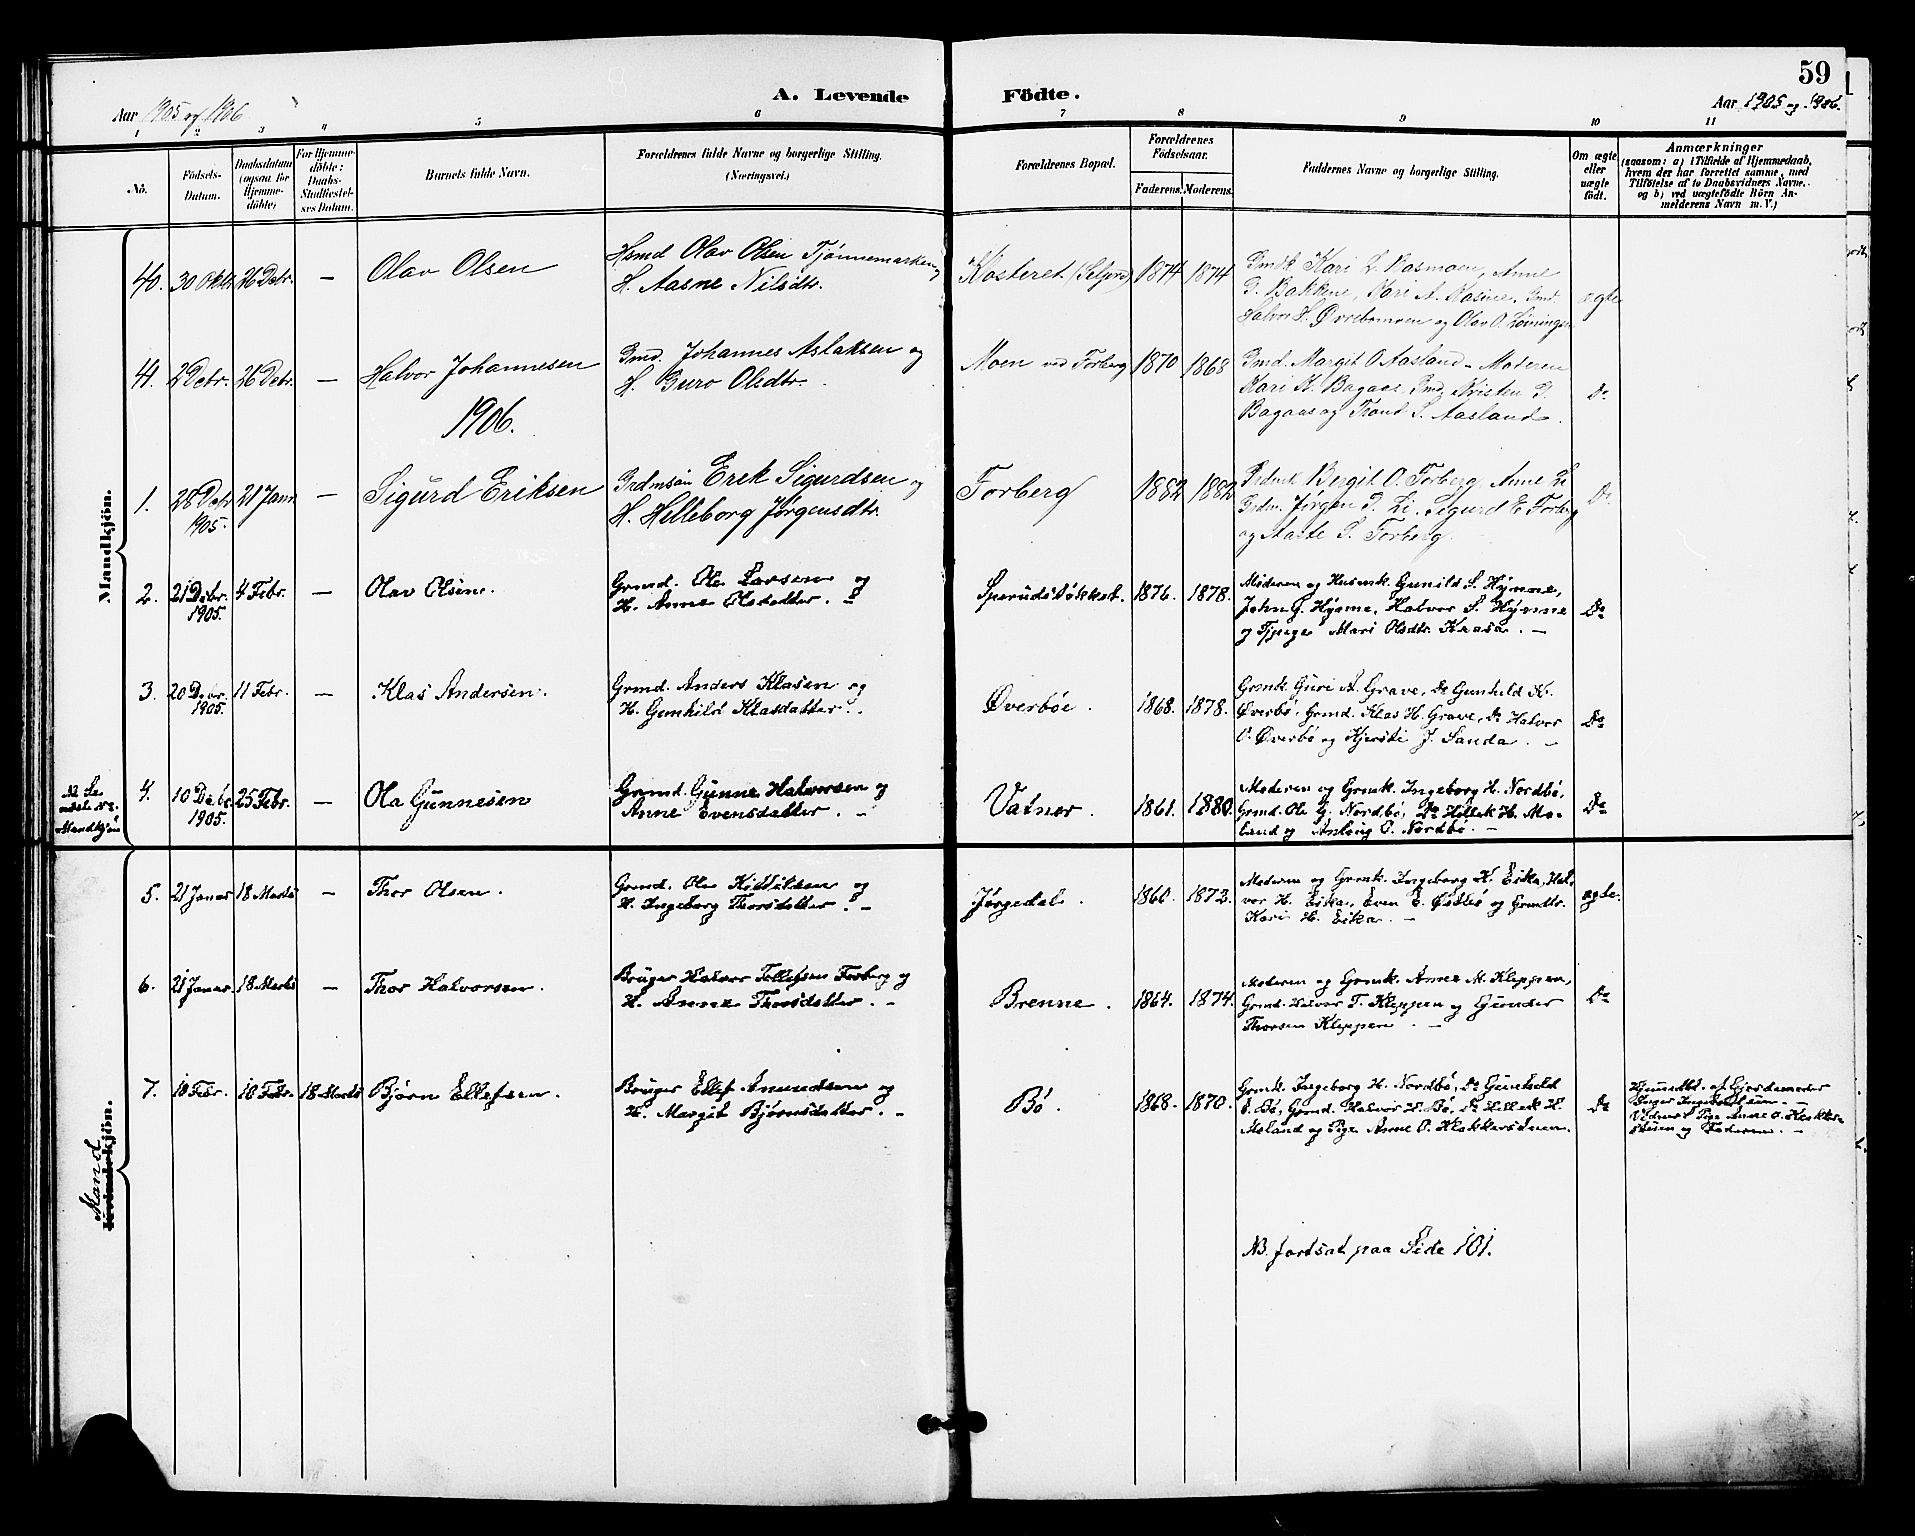 59
A. Levende Födte.
Aar 1905 og 1906
Aar 1905 og 1906.
1 2 3 4 5 6 7 8 9 10 11
No.
Födsels-Datum.
Daabsdatum (ogsaa for Hjemmedöbte)
For Hjemmedöbte: Daabs-Stadfæstelses Datum.
Barnets fulde Navn.
Forældrenes fulde Navne og borgerlige Stilling. (Næringsvei.)
Forældrenes Bopæl.
Forældrenes Födselsaar.
Faderens. Moderens.
Faddernes Navne og borgerlige Stilling.
Om ægte eller uægte födt.
Anmærkninger
(saasom: a) i Tilfælde af Hjemmedaab, hvem der har forrettet samme, med Tilföielse af to Daabsvidners Navne. og b) ved uægtefödte Börn Anmelderens Navn m. V.)
Mandkjön.
40. 30 Oktbr 26 Debr. — Olav Olsen
Hsmd Olav Olsen Tjønnemarken og
H. Aasne Nilsdtr.
Kosteret (Seljord) 1874 1874
Gmdk. Kari L. Vasmoen, Anne
G. Bakkene, Kari A. Kasine, Gmd.
Halvor H. Øvrebømoen og Olav O. Løiningen
ægte
41. 2 Debr. 26 Debr. — Halvor Johannesen
Gmd. Johannes Aslaksen og
H. Guro Olsdtr.
Moen ved Forberg 1870 1868
Gmd. Margit O. Aasland - Moderen
Kari K. Bagaas, Gmd. Kristen G.
Bagaas og Trond S. Aasland.
Do
1906.
1. 28 Debr 1905. 21 Janr — Sigurd Eriksen
Grdmsøn Erek Sigurdsen og
H. Helleborg Jørgensdtr.
Forberg 1882 1882
Grdmk. Bergit O. Forberg, Anne Li
Grdm. Jørgen G. Li, Sigurd E. Forberg
og Aaste S. Forberg.
Do
2. 21 Debr. 1905. 4 Febr. — Olav Olsen.
Grmd. Ole Larsen og
H. Anne Olsdatter.
Sperudstøkket. 1876. 1878.
Moderen og Husmk. Gunild S. Hynne,
John G. Hynne, Halvor S. Hynne
og Tjpige Mari Olsdtr. Kaasa. —
Do
3. 20 Debr. 1905. 11 Febr. — Klas Andersen.
Grmd. Anders Klasen og
H. Gunhild Klasdatter.
Øverbøe. 1868. 1878.
Grmk. Guri A. Grave, Do Gunhild K.
Øverbø, Grmd. Klas H. Grave, Do Halvor
O. Øverbø og Kjersti J. Sanda. —
Do
4. 10 Debr. 1905. 25 Febr. — Ola Gunnesen
Grmd. Gunne Halvorsen og
Anne Evensdatter. —
Vatnar. 1861. 1880.
Moderen og Grmk. Ingeborg H. Nordbø,
Grmd. Ole G. Nordbø, Do Hellek H. Mo-
land og Anlaug O. Nordbø. —
Do
5. 21 Januar 18 Marts — Thor Olsen.
Grmd. Ole Kittilsen og
H. Ingeborg Thorsdatter. —
Jørgedal. 1860. 1872.
Moderen og Grmk. Ingeborg K. Eika, Hal-
vor H. Eika, Even E. Østbø og Grmdtr.
Kari H. Eika. —
ægte.
6. 21 Januar. 18 Marts — Thor Halvorsen.
Bruger Halvor Tollefsen Forberg og
H. Anne Thorsdatter. —
Brenne. 1864. 1874.
Moderen og Grmk. Anne M. Kleppen,
Grmd. Halvor T. Kleppen og Gunder
Thorsen Kleppen. —
Do
7. 10 Febr. 10 Febr. 18 Marts Bjørn Ellefsen.
Bruger Ellef Amundsen og
H. Margit Bjørnsdatter. —
Bø. 1868. 1870.
Grmk. Ingeborg H. Nordbø, Do Gunhild
O. Bø, Grmd. Halvor H. Bø, Do Hellek H.
Moland og Pige Anne O. Klakkersteen.
Do
Hjemdbt. af Gjordemoder
Vidner: Pige Anne O. Klakker-
steen og Faderen. —
Mand
Kvindekjön.
NB. fortsat paa Side 101.